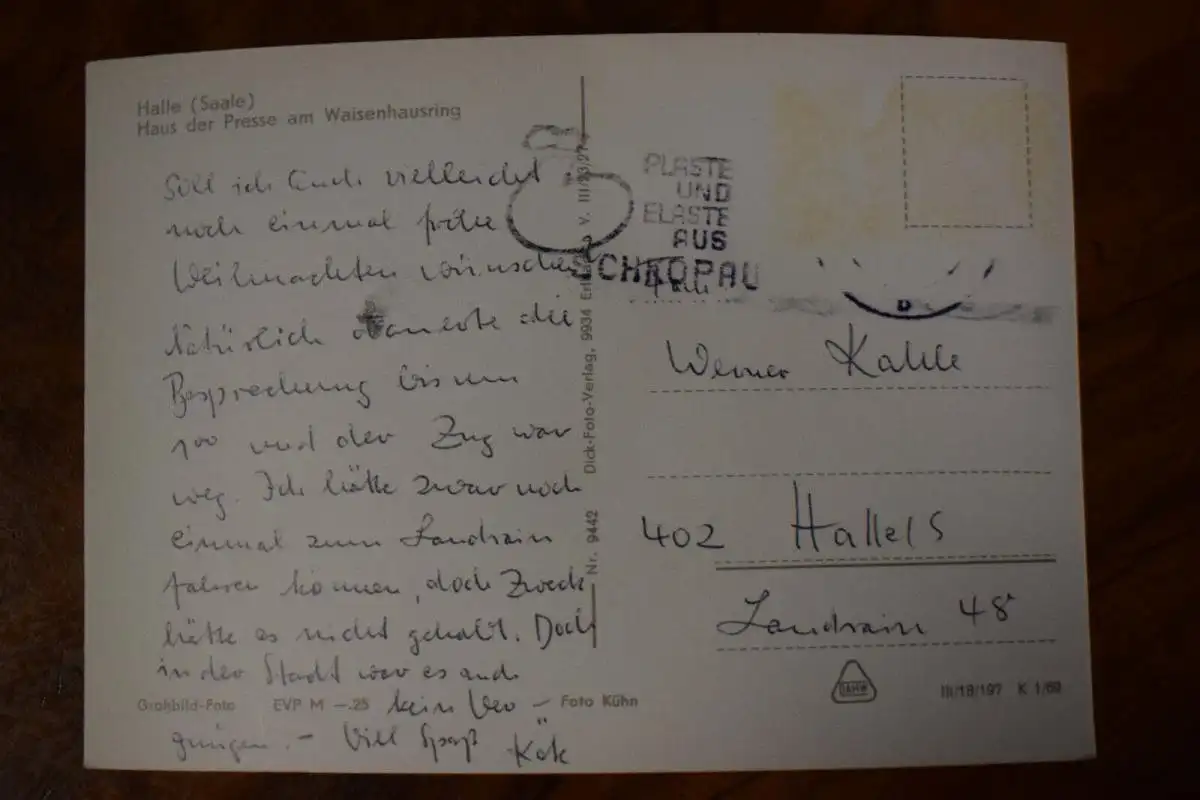 Halle (Saale)
Haus der Presse am Waisenhausring
Soll ich Euch vielleicht
noch einmal frohe
Weihnachten wünschen
Natürlich dauerte die
Besprechung bis um
1⁰⁰ und der Zug war
weg. Ich hätte zwar noch
einmal zum Landrain
fahren können, doch Zweck
hätte es nicht gehabt. Doch
in der Stadt war es auch
kein Ver-
gnügen. - Viel Spaß
Großbild-Foto EVP M -.25 Foto Kühn
Nr. 9442 Dick-Foto-Verlag, 9934 V. III/23/97
PLASTE
UND
ELASTE
AUS
SCHKOPAU
Werner Kahle
402 Halle/S
Landrain 48
III/18/197 K 1/69